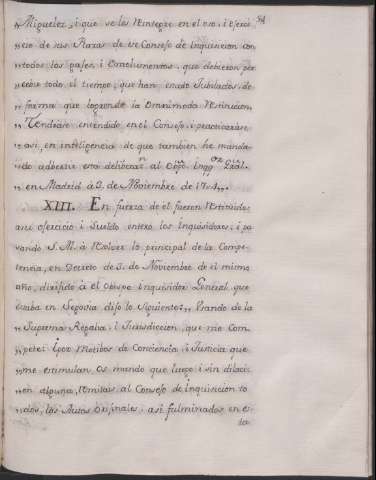 54
„ Miguelez, i que se les Reintegre en el uso, i exerci
„ cio de sus Plazas de ese Consejo de Inquisicion con
„ todos los gajes, i Emolumentos, que debieron per
„ cebir todo el tiempo, que han estado Jubilados, de
„ forma que logren de la Omnimoda Restitucion.
„ Tendráse entendido en el Consejo, i practicaráse
„ assi, en inteligencia de que tambien he manda
„ do advertir esta deliberan. al Obpo. Inqqor. Gral.
„ en Madrid á 3. de Noviembre de 1704„.
XIII. En fuerza de el fueron Restituidos
assi exercicio i Sueldo entrro los Inquisidores, i pa
sando S. M. à Resolver lo principal de la Compe
tencia, en Decreto de 3. de Noviembre de el mismo
año, dirijido à el Obispo Inquisidor General, que
estaba en Segovia dijo lo siguiente: „ Usando de la
„ Suprema Regalia, i Jurisdiccion, que me com
„ pete: i por Motibos de Conciencia, i Justicia que
„ me estimulan, os mando que luego, i sin dilaci
„ on alguna, Remitas al Consejo de Inquisicion to
„ dos, los Autos Orijinales, assi fulminados en es
ta